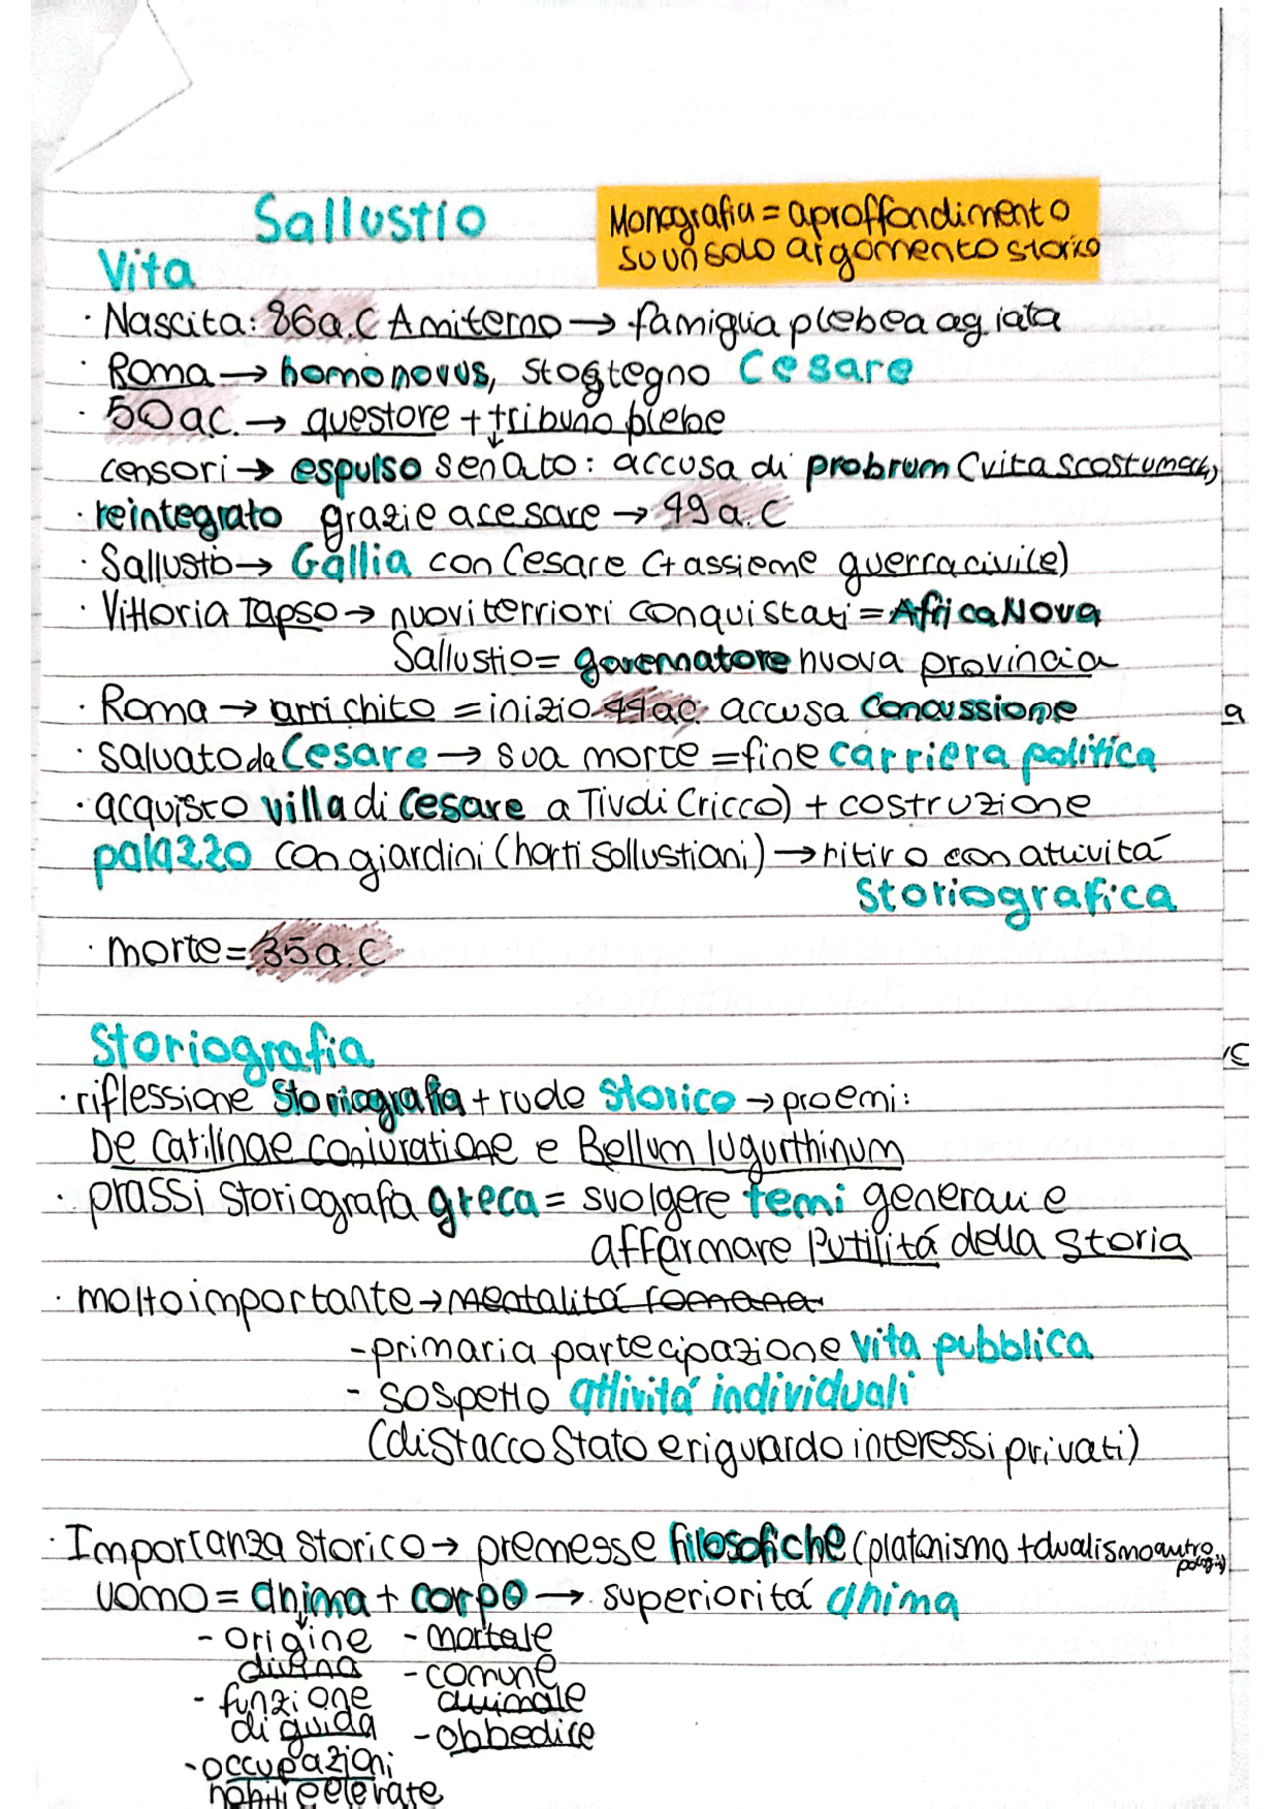 Sallustio
Monografia = aproffondimento
su un solo argomento storico
Vita
· Nascita: 86 a.C Amiterno → famiglia plebea agiata
· Roma → homo novus, sostegno Cesare
· 50 a.C. → questore + tribuno plebe
censori → espulso senato: accusa di probrum (vita scostumata)
· reintegrato grazie a cesare → 49 a.C
· Sallustio → Gallia con Cesare (+ assieme guerra civile)
· Vittoria Tapso → nuovi terriori conquistati = Africa Nova
Sallustio = governatore nuova provincia
· Roma → arrichito = inizio 44 a.c. accusa concussione
· salvato da Cesare → sua morte = fine carriera politica
· acquisto villa di Cesare a Tivoli (ricco) + costruzione
palazzo con giardini (horti sollustiani) → ritiro con attività
storiografica
· morte = 35 a.C
Storiografia
· riflessione storiografia + ruolo storico → proemi:
De Catilinae coniuratione e Bellum Iugurthinum
· prassi storiografia greca = svolgere temi generali e
affermare l'utilitá della storia
· molto importante → mentalitá romana
- primaria partecipazione vita pubblica
- sospetto attivitá individuali
(distacco Stato e riguardo interessi privati)
· Importanza storico → premesse filosofiche (platonismo + dualismo antropologico)
uomo = anima + corpo → superioritá anima
- origine - mortale
divina - comune
- funzione animale
di guida - obbedire
- occupazioni
nobili e elevate